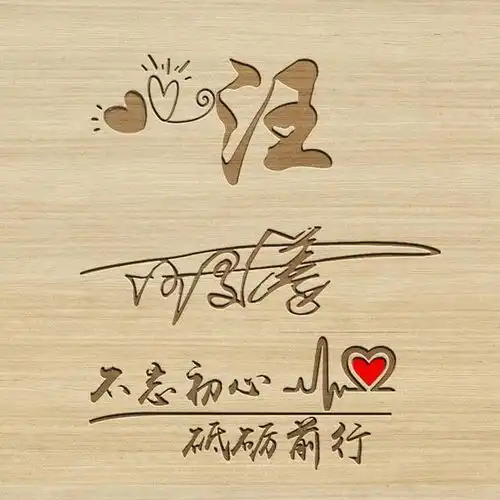 汪
不忘初心
砥砺前行